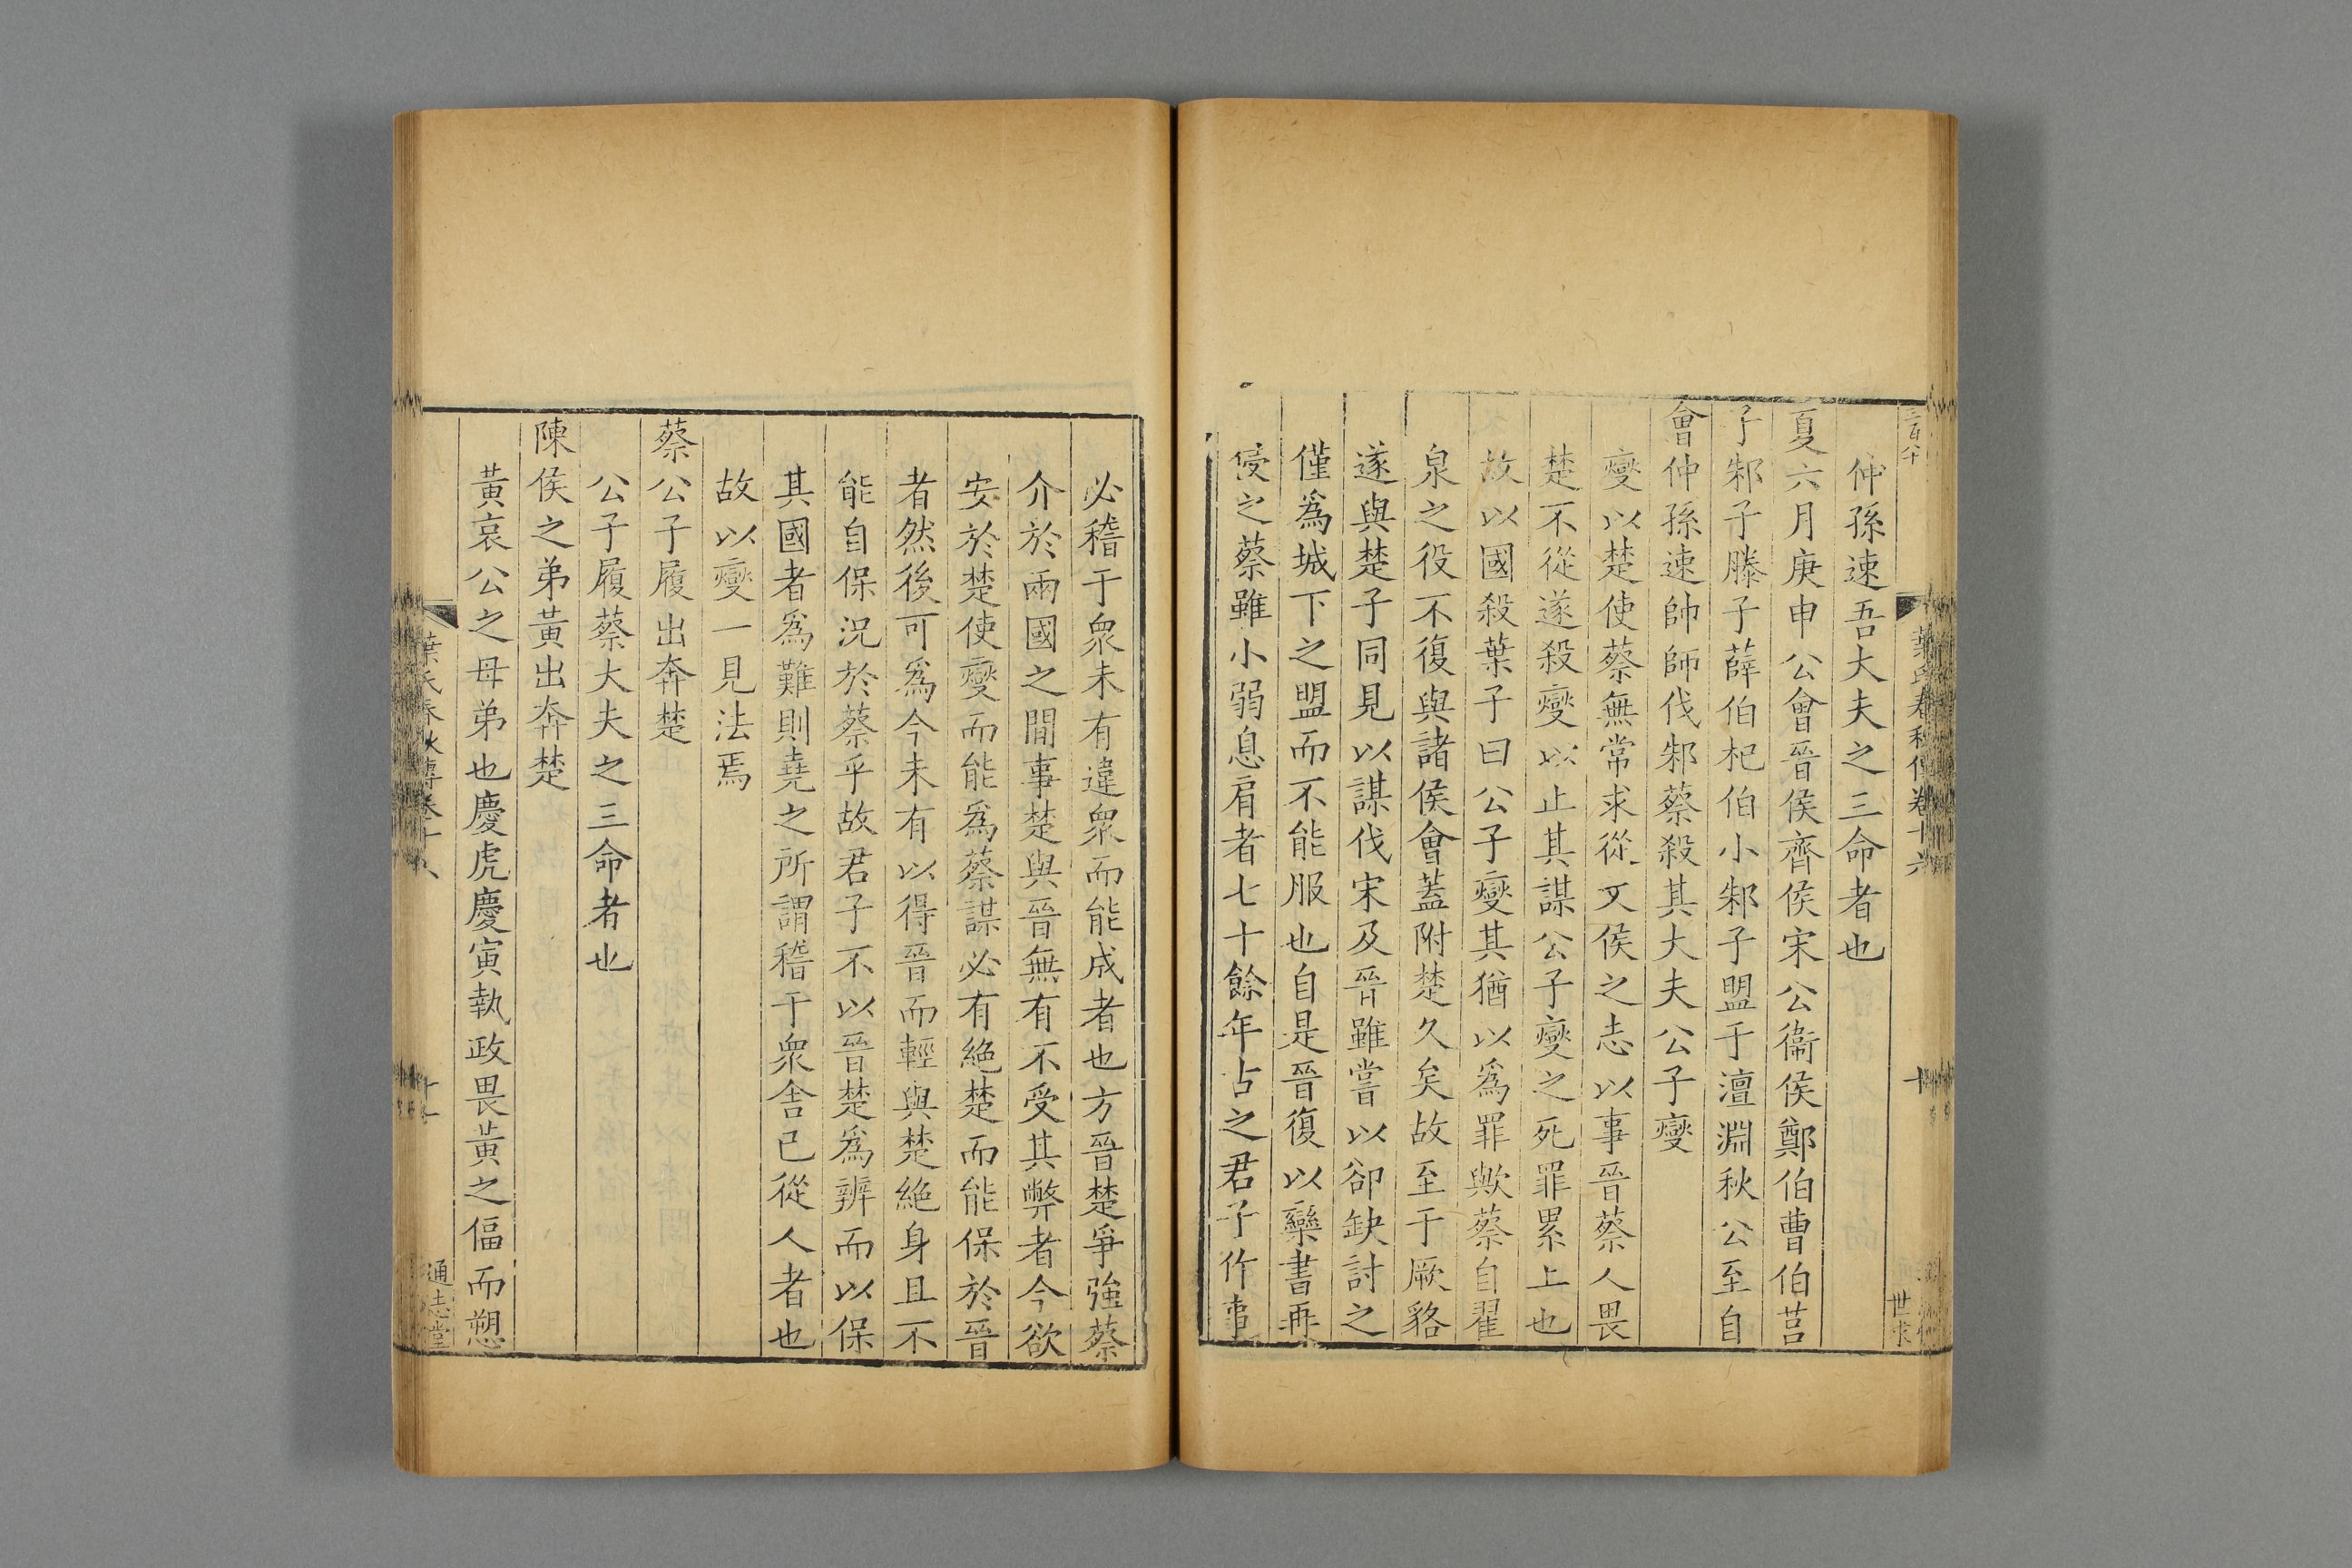 三百八十
葉氏春秋傳卷十六
十
仲孫速吾大夫之三命者也
夏六月庚申公會晉侯齊侯宋公衞侯鄭伯曹伯莒
子邾子滕子薛伯杞伯小邾子盟于澶淵秋公至自
會仲孫速帥師伐邾蔡殺其大夫公子燮
燮以楚使蔡無常求從文侯之志以事晉蔡人畏
楚不從遂殺燮以止其謀公子燮之死罪累上也
故以國殺葉子曰公子燮其猶以爲罪歟蔡自翟
泉之役不復與諸侯會蓋附楚久矣故至于厥貉
遂與楚子同見以謀伐宋及晉雖嘗以郤缺討之
僅爲城下之盟而不能服也自是晉復以欒書再
侵之蔡雖小弱息肩者七十餘年占之君子作事
必稽于衆未有違衆而能成者也方晉楚爭強蔡
介於兩國之間事楚與晉無有不受其弊者今欲
安於楚使燮而能爲蔡謀必有絶楚而能保於晉
者然後可爲今未有以得晉而輕與楚絶身且不
能自保況於蔡乎故君子不以晉楚爲辨而以保
其國者爲難則堯之所謂稽于衆舎已從人者也
故以燮一見法焉
蔡公子履出奔楚
公子履蔡大夫之三命者也
陳侯之弟黃出奔楚
黃哀公之母弟也慶虎慶寅執政畏黃之偪而愬
葉氏春秋傳卷十六
十一
通志堂